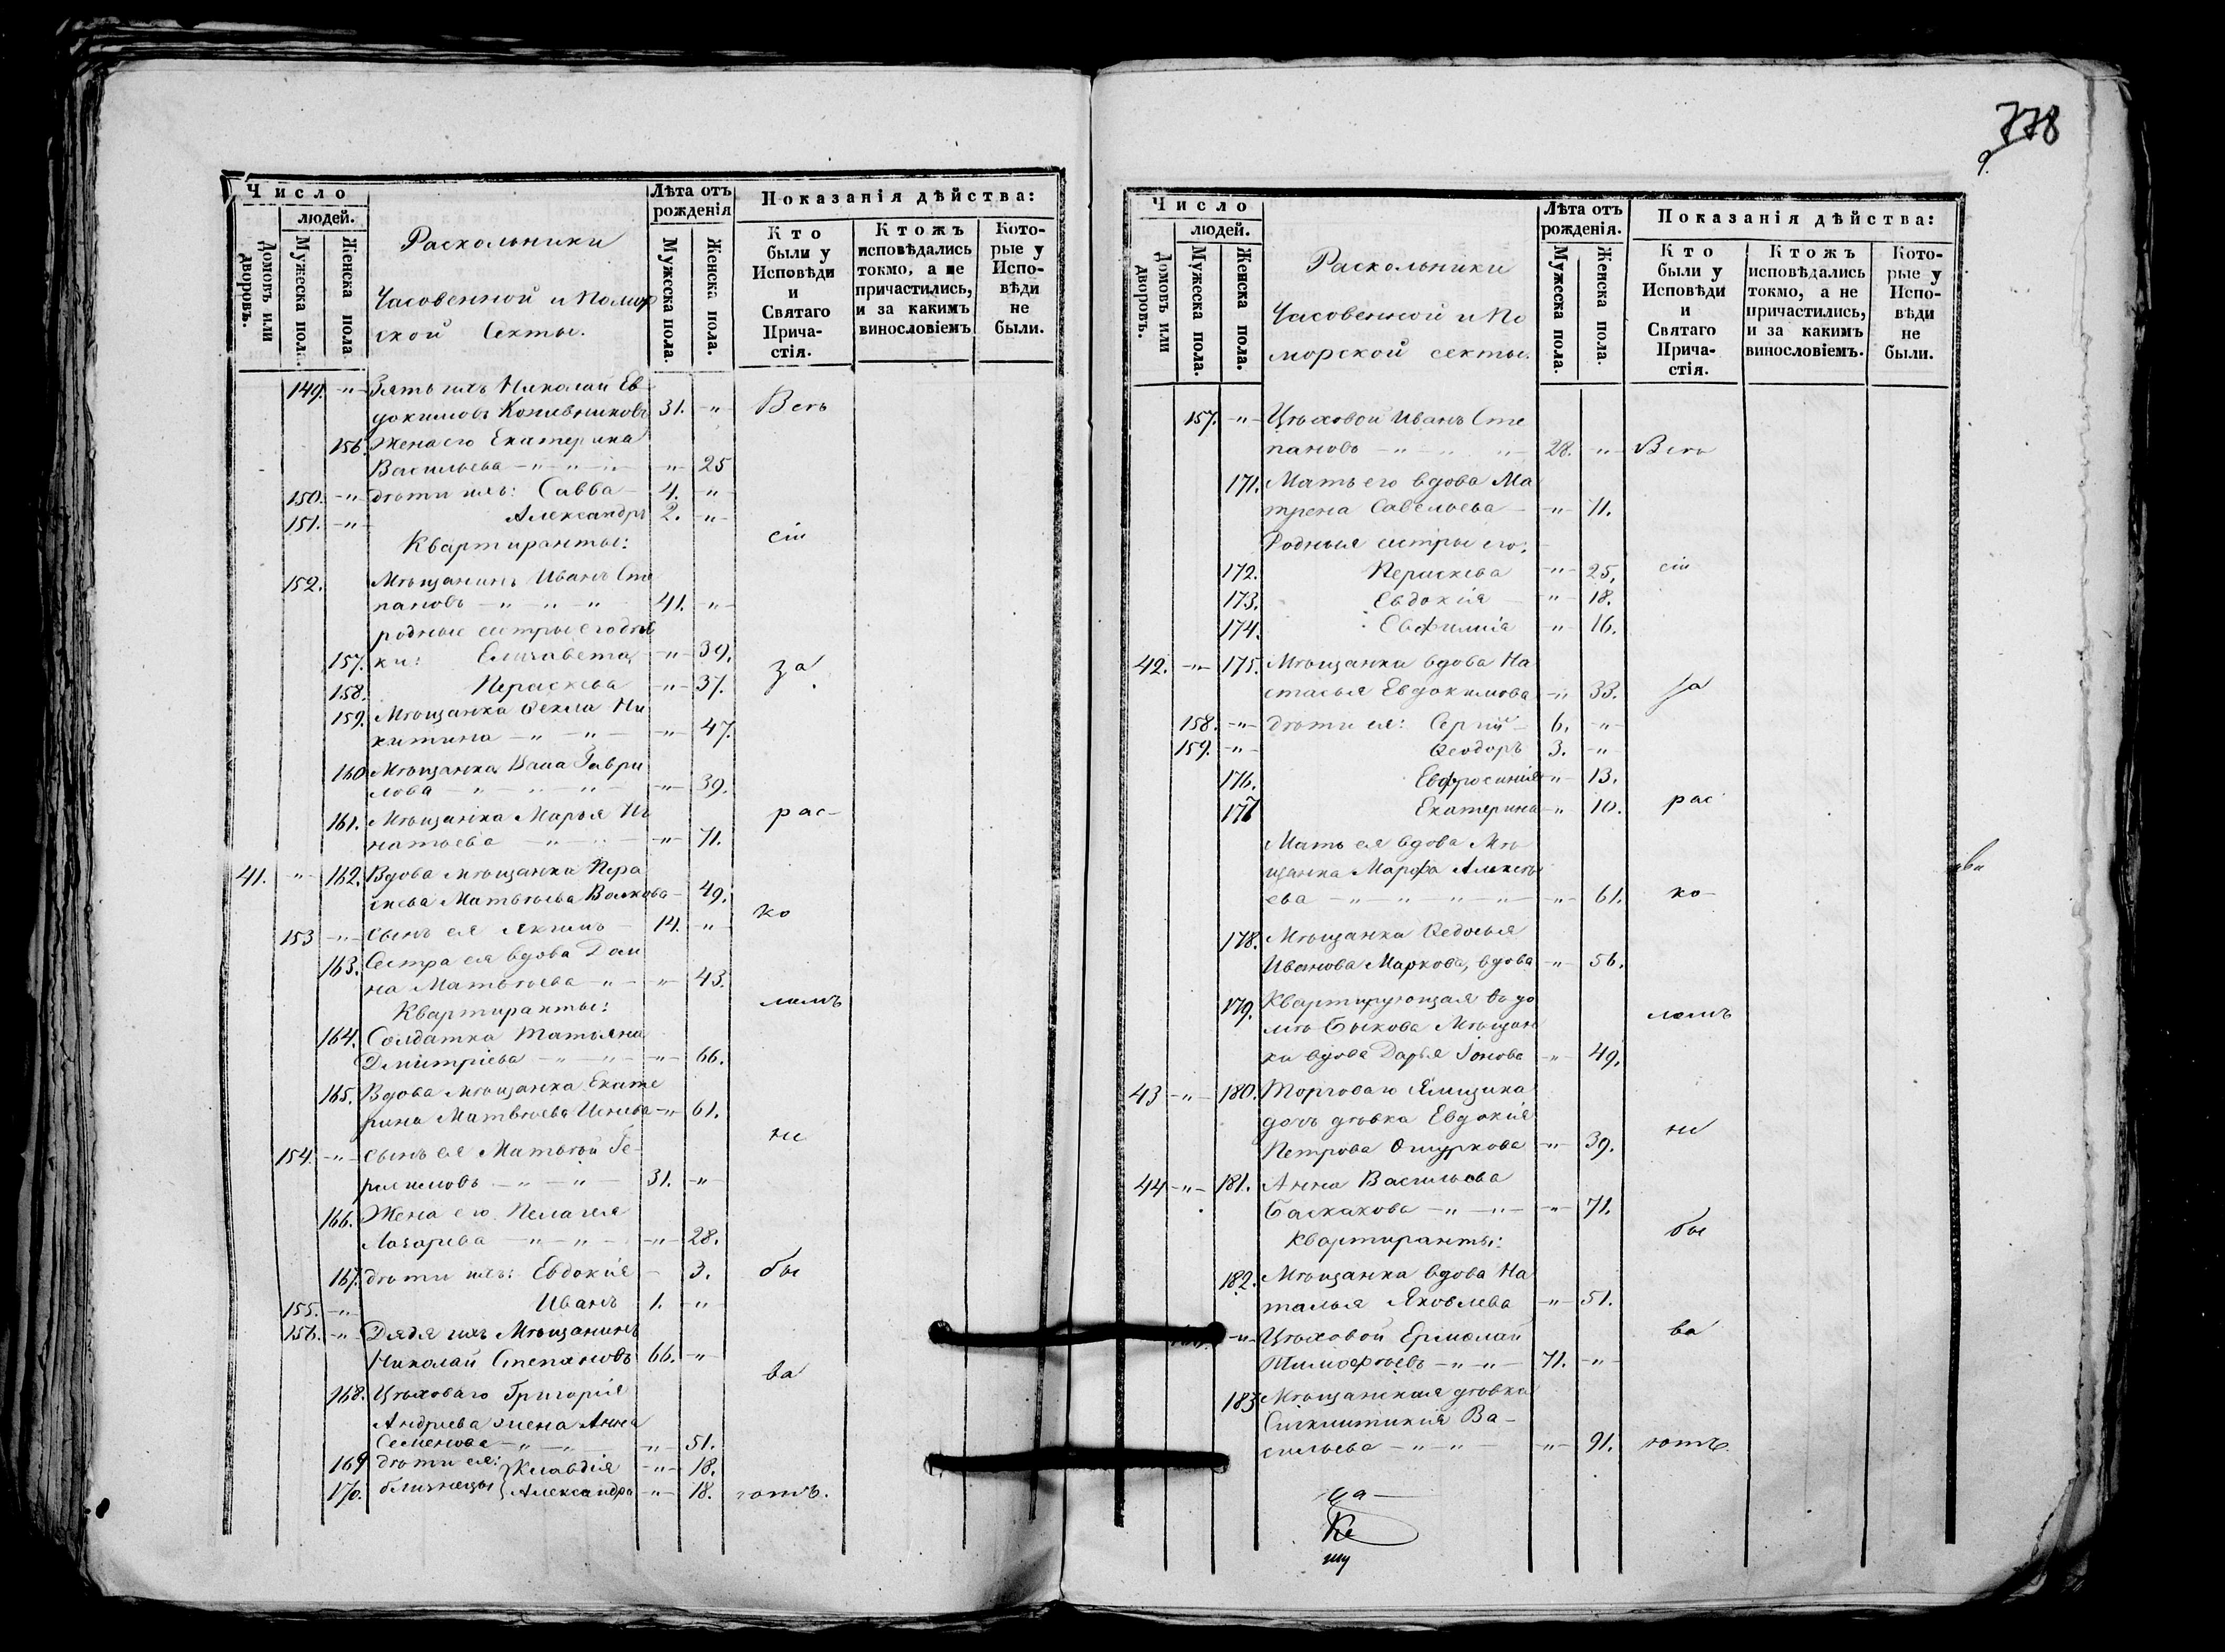 778
9.
Число
людей.
Домовъ или дворовъ.
Мужеска пола.
Женска пола
Раскольники
Часовенной и Помор
ской Секты.
Лѣта отъ рожденія
Мужеска пола.
Женска пола.
Показанія дѣйства:
Кто были у Исповѣди и Святаго Прича- стія.
Ктожъ исповѣдались токмо, а не причастились, и за какимъ винословіемъ
Кото- рые у Испо- вѣди не были.
149. -"- Зять ихъ Николай Ев
докимовъ Кожевниковъ 31. -"- Всѣ
156. Жена его Екатерина
Васильева -"- -"- -"- -"- 25
150. -"- дѣти ихъ: Савва 4. -"-
151. -"- Александръ 2. -"-
Квартиранты: сіи
152. Мѣщанинъ Иванъ Сте
пановъ -"- -"- -"- 41. -"-
родные сестры его дѣв
157. ки: Елизавета -"- 39. за
158. Параскева -"- 37.
159. Мѣщанка Ѳекла Ни
китина -"- -"- -"- 47.
160. Мѣщанка Васа Гаври
лова -"- -"- -"- -"- 39.
161. Мѣщанка Марья Иг рас-
натьева -"- -"- -"- 71.
41. -"- 162. Вдова мѣщанка Пера
скева Матвѣева Волкова 49. ко
153 -"- сынъ ея Якимъ 14. -"-
163. Сестра ея вдова Дом
на Матвѣева -"- -"- 43.
Квартиранты: ломъ
164. Солдатка Татьяна
Дмитріева -"- -"- -"- 66.
165. Вдова мѣщанка Екате
рина Матвѣева -"- 61.
154. -"- сынъ ея Матвѣй Ге- не
расимовъ -"- -"- 31. -"-
166. Жена его Пелагея
Лазарева -"- -"- -"- 28.
167. дѣти ихъ: Евдокія 3. бы
155. -"- Иванъ 1. -"-
156. -"- Дядя ихъ Мѣщанинъ
Николай Степановъ 66. -"- ва
168. Цѣховаго Григорія
Андреева жена Анна
Семенова -"- -"- -"- 51.
169 дѣти ея: Клавдія -"- 18.
170. близнецы Александра -"- 18. ютъ.
Число
людей.
Домовъ или дворовъ.
Мужеска пола.
Женска пола.
Раскольники
Часовенной и По
морской секты.
Лѣта отъ рожденія.
Мужеска пола.
Женска пола.
Показанія дѣйства:
Кто были у Исповѣди и Святаго Прича- стія.
Ктожъ исповѣдались токмо, а не причастились, и за какимъ винословіемъ.
Кото- рые у Испо- вѣди не были.
157. -"- Цѣховой Иванъ Сте
пановъ -"- -"- -"- 28. -"- Всѣ
171. Мать его вдова Ма
трена Савельева -"- 71.
Родныя сестры его:
172. Параскева -"- 25, сіи
173. Евдокія -"- 18.
174. Евфимія -"- 16.
42. -"- 175. Мѣщанка вдова На
стасья Евдокимова -"- 33. за
158. -"- дѣти ея: Сергій 6. -"-
159. -"- Ѳеодоръ 3. -"-
176. Евфросинія -"- 13.
177 Екатерина -"- 10. рас
Мать ея вдова Мѣ
щанка Марфа Алексѣ
ева -"- -"- -"- -"- -"- 61. ко-
178. Мѣщанка Ѳедосья
Иванова Маркова, вдова -"- 56.
179. Квартирующая въ до
мѣ Быкова Мѣщан ломъ
ка вдова Дарья Іонова -"- 49.
43 -"- 180. Торговаго Ямщика
дочь дѣвка Евдокія
Петрова Ошуркова -"- 39. не
44 -"- 181. Анна Васильева
Баскакова -"- -"- -"- 71.
Квартиранты: бы
182. Мѣщанка вдова На
талья Яковлева -"- 51.
-"- Цѣховой Ермолай ва
Тимофѣевъ -"- -"- 71. -"-
183 Мѣщанская дѣвка
Синклитикія Ва-
сильева -"- -"- -"- 91. ютъ.